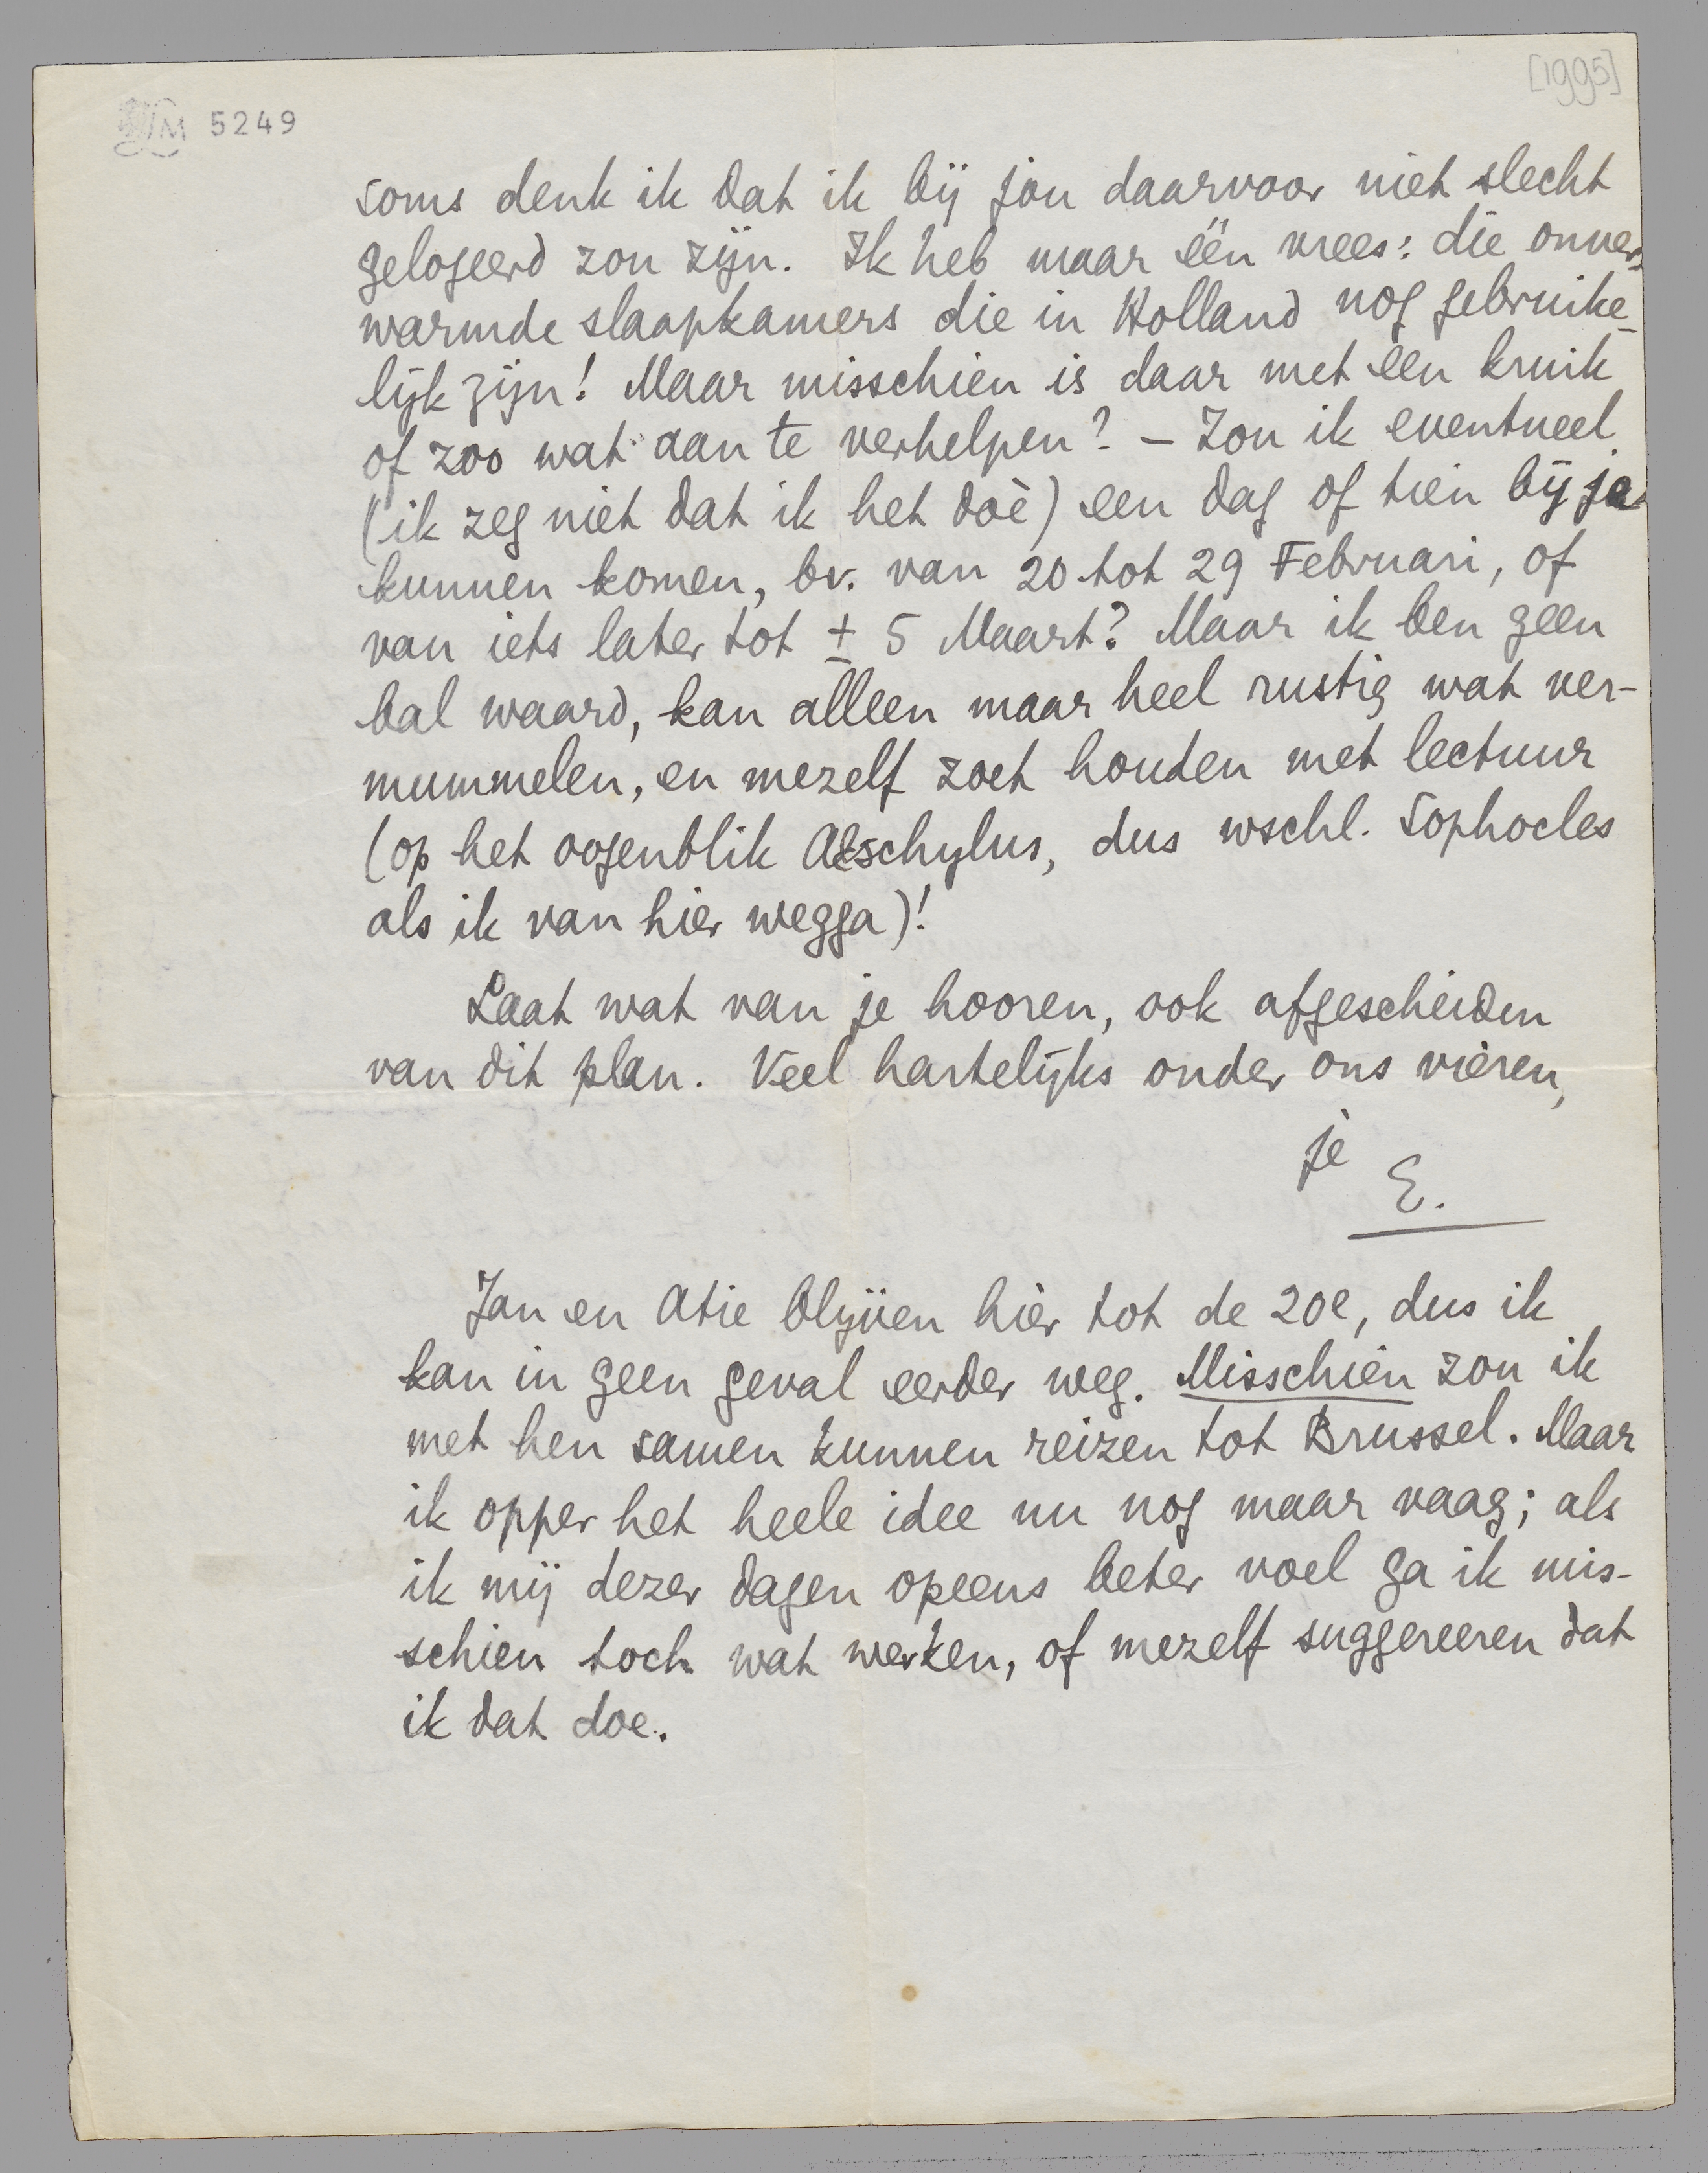 [1995]
LM 5249
soms denk ik dat ik bij jou daarvoor niet slecht
gelogeerd zou zijn. Ik heb maar één vrees: die onver-
warmde slaapkamers die in Holland nog gebruike-
lijk zijn! Maar misschien is daar met een kruik
of zoo wat aan te verhelpen? – Zou ik eventueel
(ik zeg niet dat ik het doè) een dag of tien bij je
kunnen komen, bv. van 20 tot 29 Februari, of
van iets later tot ± 5 Maart? Maar ik ben geen
bal waard, kan alleen maar heel rustig wat ver-
mummelen, en mezelf zoet houden met lectuur
(op het oogenblik Aeschylus, dus wschl. Sophocles
als ik van hier wegga)!
Laat wat van je hooren, ook afgescheiden
van dit plan. Veel hartelijks onder ons vieren,
je
E.
Jan en Atie blijven hier tot de 20e, dus ik
kan in geen geval eerder weg. Misschien zou ik
met hen samen kunnen reizen tot Brussel. Maar
ik opper het heele idee nu nog maar vaag; als
ik mij dezer dagen opeens beter voel ga ik mis-
schien toch wat werken, of mezelf suggereeren dat
ik dat doe.